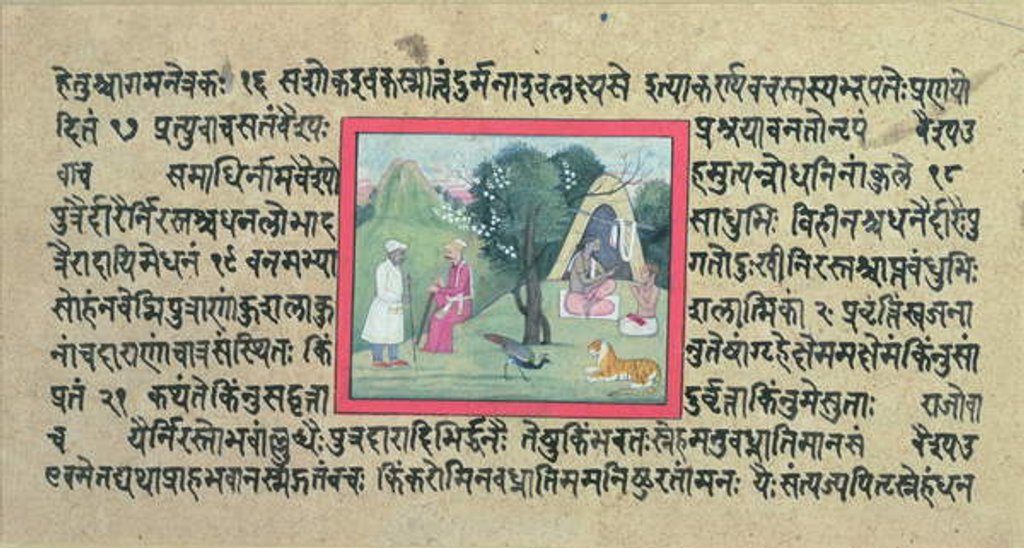 हेतुश्चागमनेत्रकः १६ सशोकइवकस्मात्त्वंदुर्मनाइवलक्ष्यसे इत्याकर्ण्यवचस्तस्यभूपतेःप्रणयो
दितं १७ प्रत्युवाचसतंवैश्यः प्रश्रयावनतोनृपं वैश्यउ
वाच समाधिर्नामवैश्यो हमुत्पन्नोधनिनांकुले १८
पुत्रैर्दारैर्निरस्तश्चधनलोभाद साधुभिः विहीनश्चधनैर्दारैःपु
त्रैरादायिमेधनं १९ वनमभ्या गतोदुःखीनिरस्तश्चाप्तवंधुभिः
सोहंनवेद्मिपुत्राणांकुशलाकु शलात्मिकां २॰ प्रवृत्तिंस्वजना
नांचदाराणांचात्रसंस्थितः किं नुतेषांगृहेक्षेममक्षेमंकिंनुसां
प्रतं २१ कथंतेकिंनुसद्वृत्ता दुर्वृत्ताकिंनुमेसुताः राजोवा
च यैर्निरस्तोभवांल्लुब्धैःपुत्रदारादिभिर्द्धनैः तेषुकिंभवतःस्नेहमनुवध्नातिमानसं वैश्यउ
एवमेतद्यथाप्राहभवानस्मद्गतंवचः किंकरोमिनवध्नातिममनिष्ठुरतांमनः यैःसंत्यज्यपितृस्नेहंधन